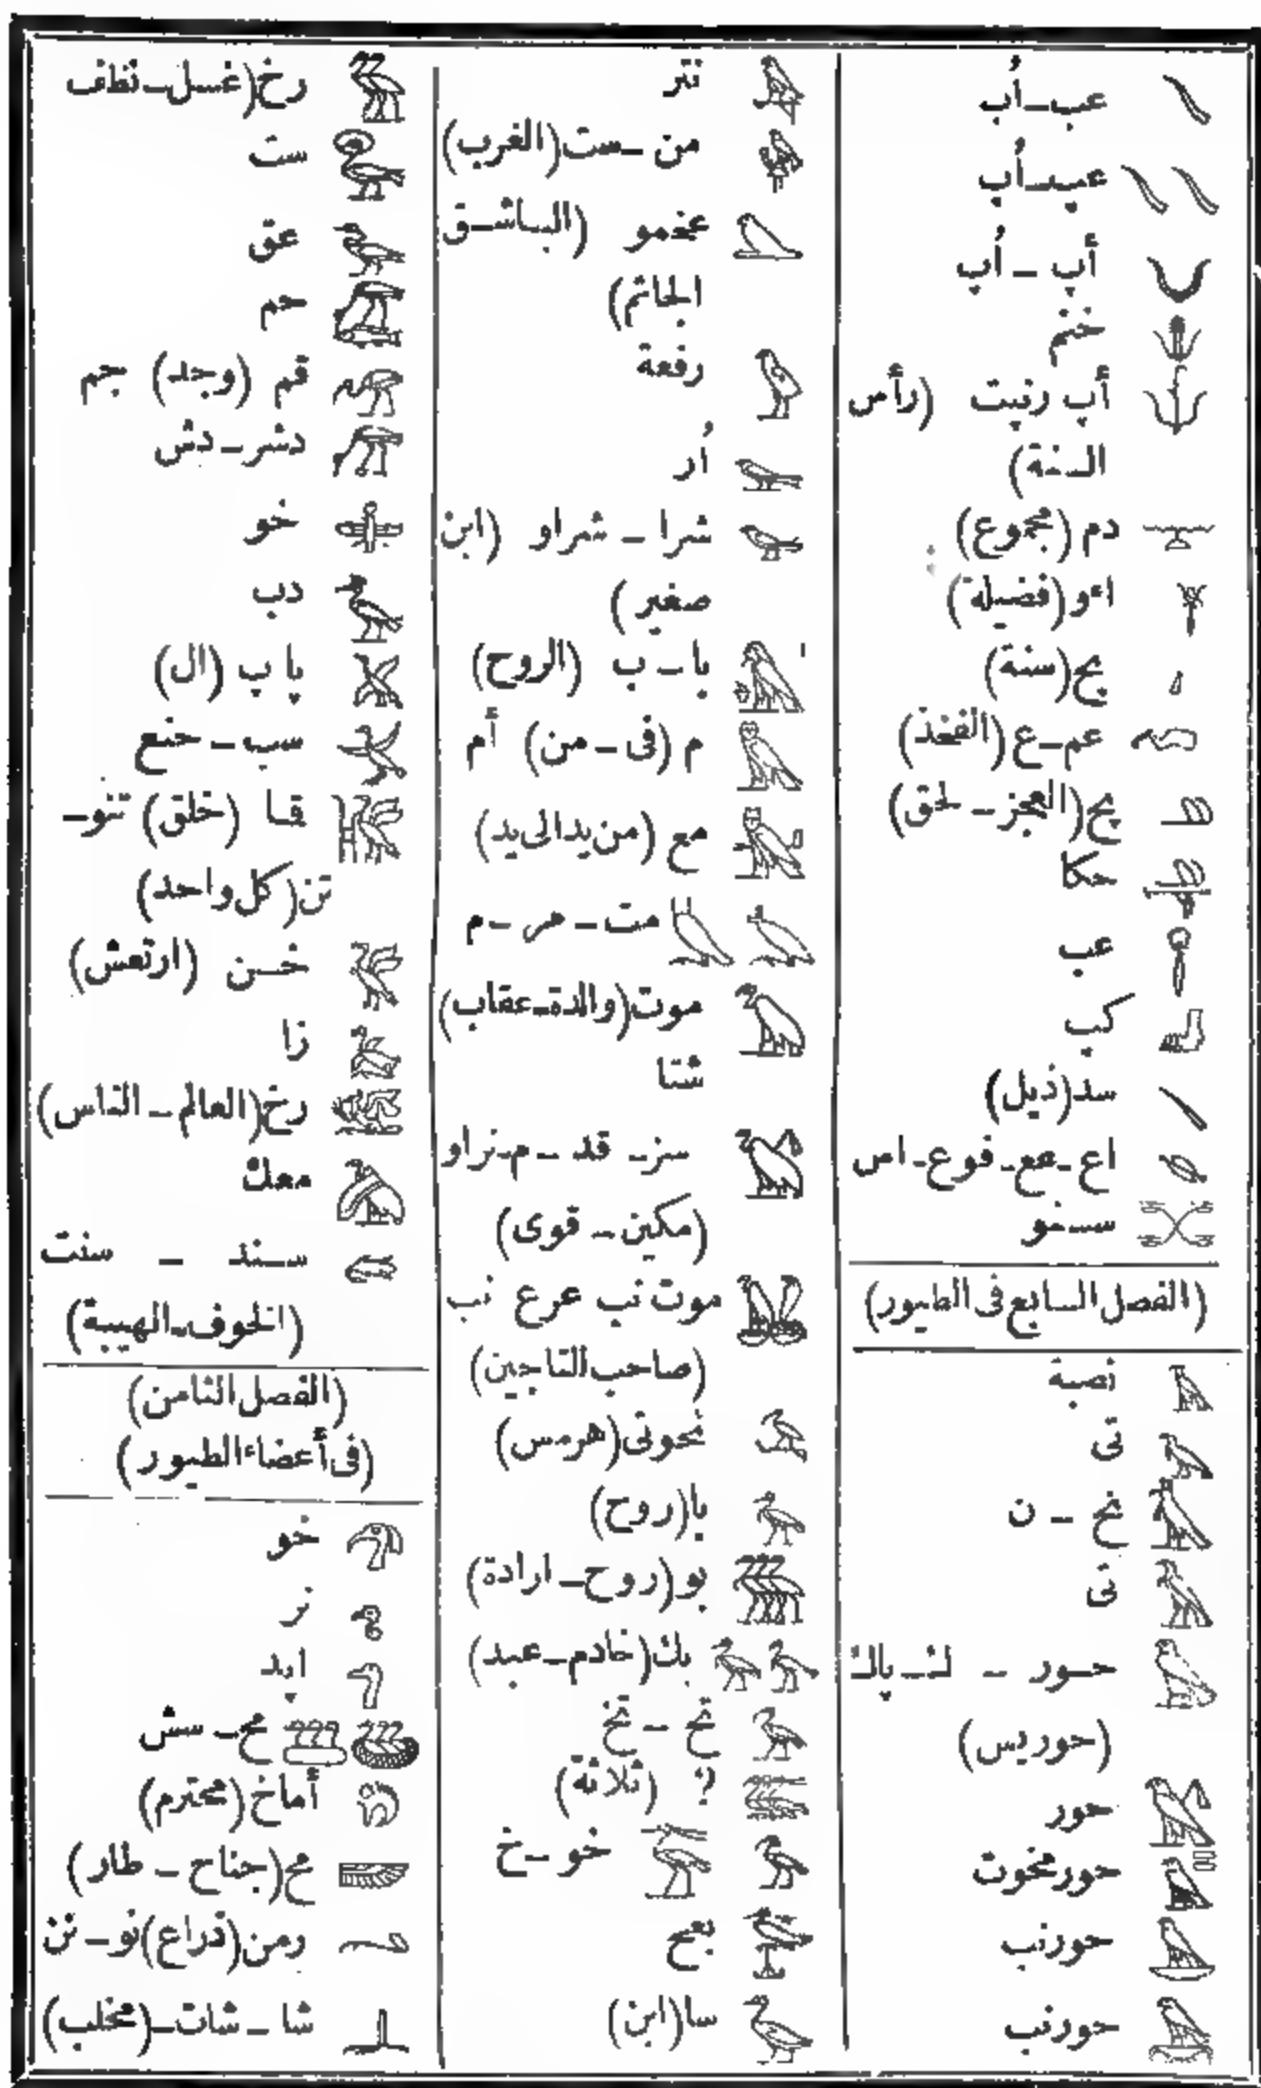 عب ـ أُب
عپ ـ أُپ
أپ ـ أُپ
خنم
أپ رنپت (رأس
السنة)
دم (مجموع)
اءو (فضيلة)
بح (سنة)
عم ـ ع (الفخذ)
پح (العجز ـ لحق)
حكا
عب
كپ
سد (ذيل)
اع ـ عع ـ فوع ـ اس
سـنو
(الفصل السابع فى الطيور)
نصبة
تى
نح ـ ن
تى
حـور ـ لـ ـ پاك
(حوريس)
حور
حورمخوت
حورنب
حورنب
نتر
من ـ ست (الغرب)
عخمو (الباشـق
الجاثم)
رفعة
أُر
شرا ـ شراو (ابن
صغير)
با ـ ب (الروح)
م (فى ـ من) أم
مع (من يد الى يد)
مت ـ مر ـ م
موت (والدة ـ عقاب)
شتا
سز ـ قد ـ م ـ نراو
(مكين ـ قوى)
موت نب عرع نب
(صاحب التاجين)
تحوتى (هرمس)
با (روح)
بو (روح ـ ارادة)
بك (خادم ـ عبد)
تخ ـ تخ
؟ (ثلاثة)
خو ـ خ
بعح
سا (ابن)
رخ (غسل ـ نظف
ست
عق
حم
قم (وجد) جم
دشر ـ دش
خو
دب
پا پ (ال)
سب ـ خنع
قـا (خلق) تنو ـ
تن (كل واحد)
خـن (ارتعش)
زا
رخ (العالم ـ الناس)
معك
سـند ـ سنت
(الخوف ـ الهيبة)
(الفصل الثامن)
(فى أعضاء الطيور)
خو
نر
اپد
مح ـ سش
أماخ (محترم)
مح (جناح ـ طار)
رمن (ذراع) نو ـ نن
شا ـ شات ـ (مخلب)